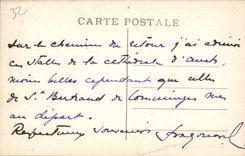 32
CARTE POSTALE
Sur le chemin du retour j'ai admiré
ces stalles de la cathédrale d'Auch,
moins belles cependant que celles
de St Bertrand de Comminges vues
au départ.
Respectueux souvenirs